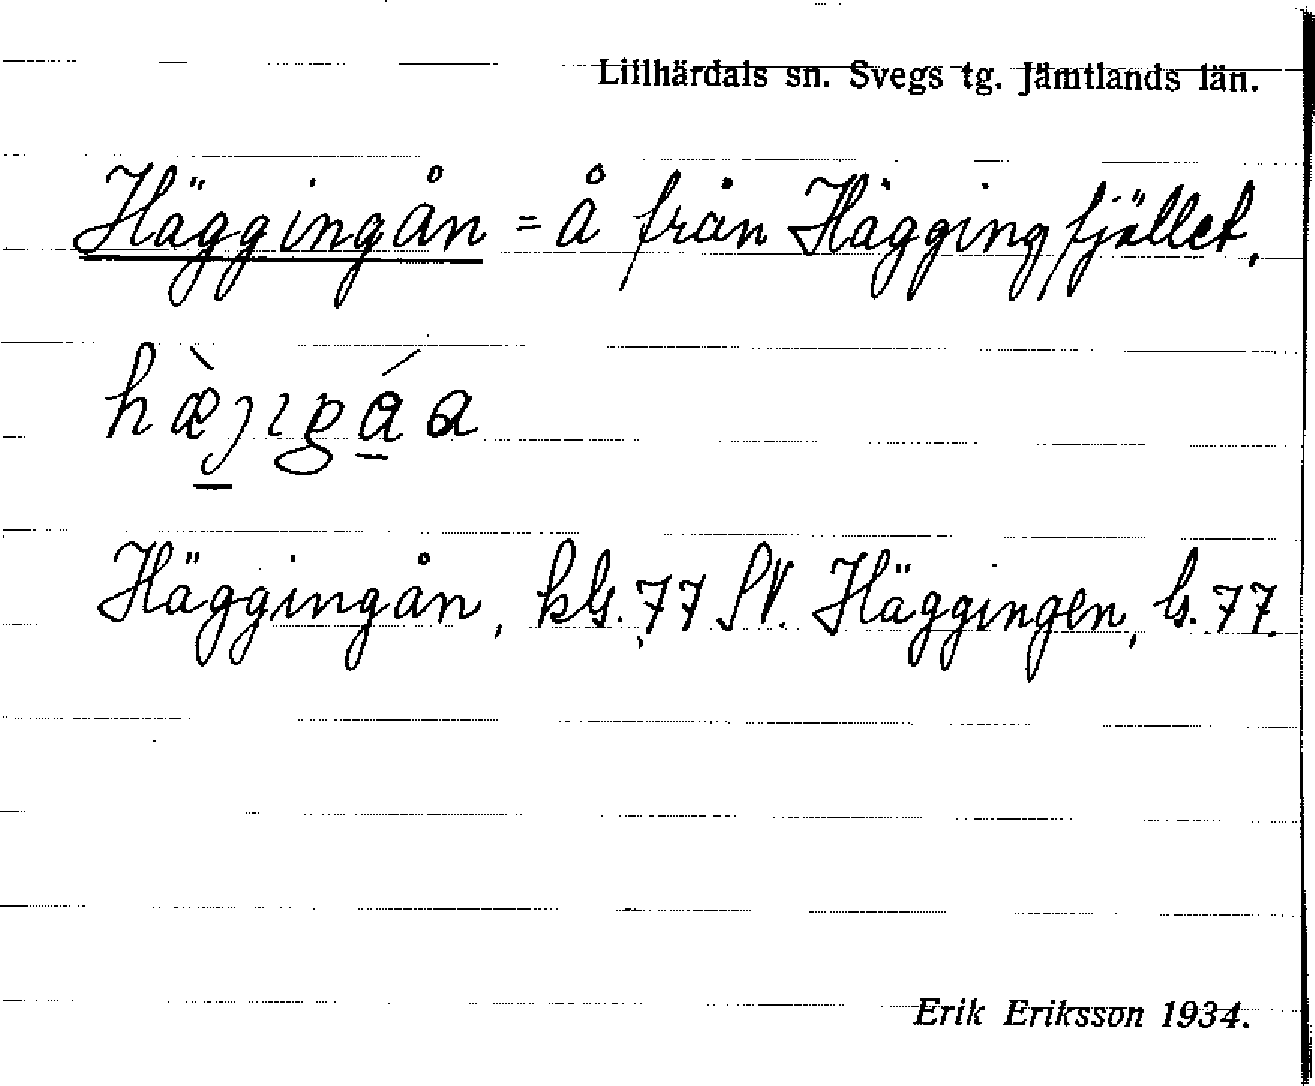 Lillhärdals sn. Svegs tg. Jämtlands län.
Häggingån = å från Häggingfjället.
Häggingån, kbl. 77 SV. Häggingen, b. 77.
Erik Eriksson 1934.